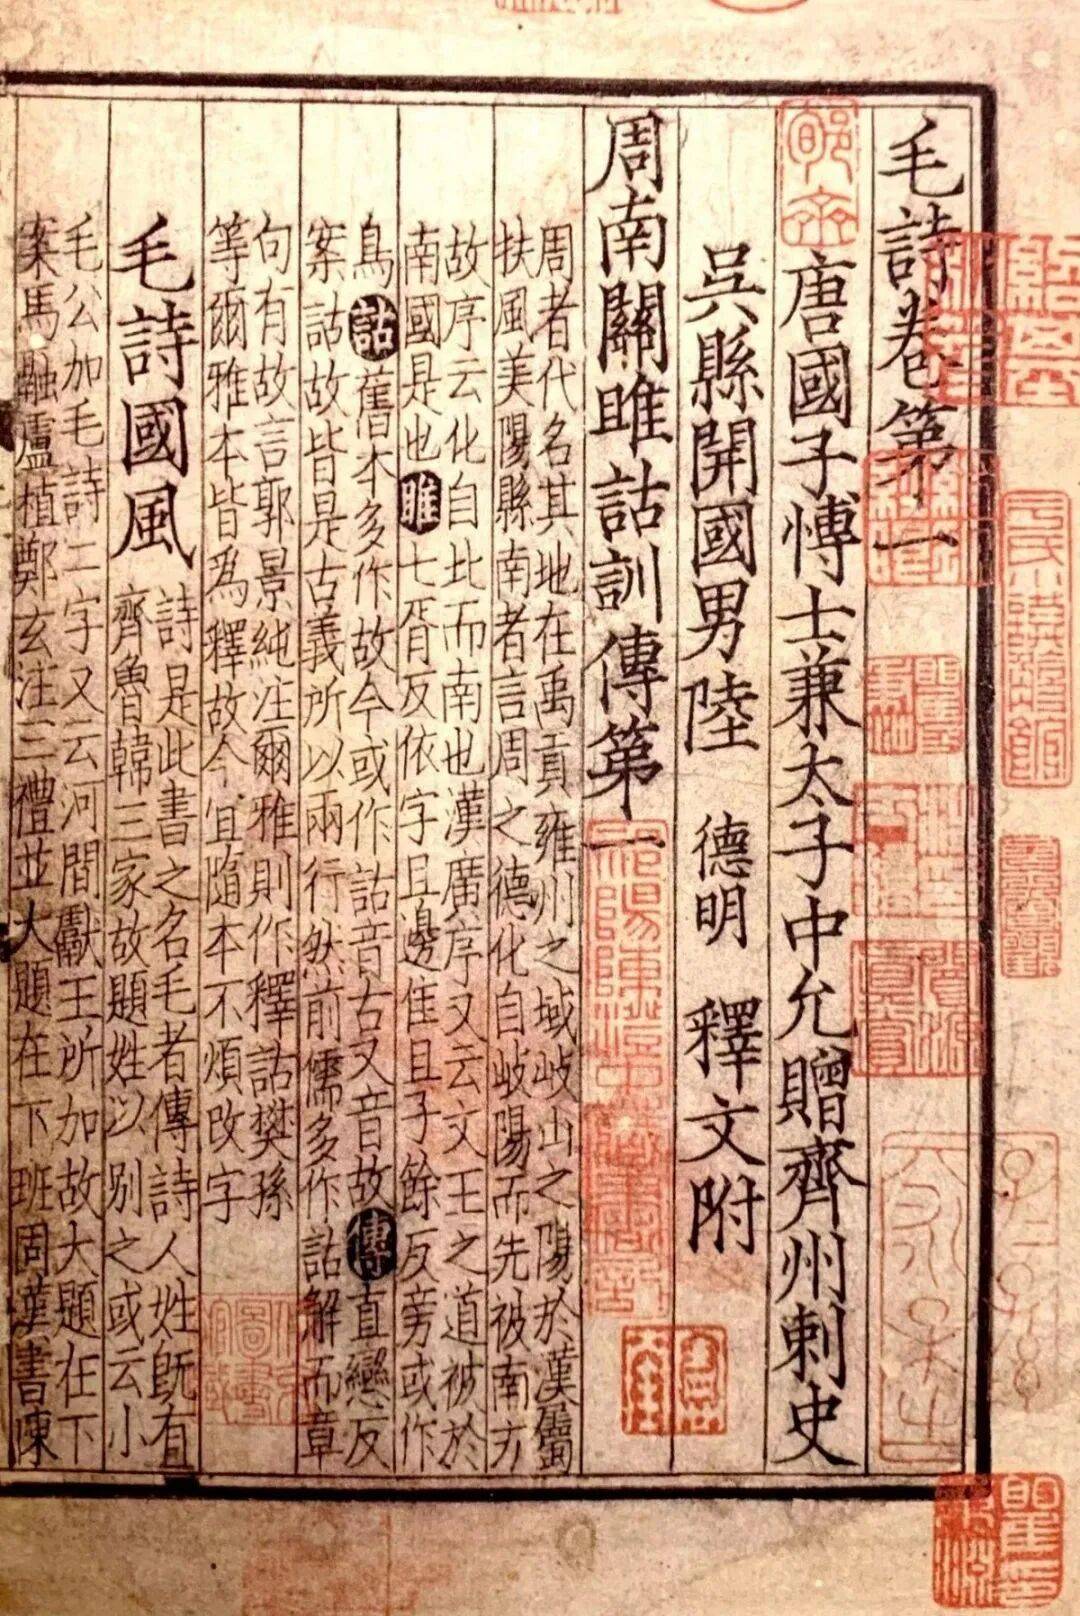 毛詩卷第一
唐國子博士兼太子中允贈齊州刺史
吳縣開國男陸 德明 釋文附
周南關雎詁訓傳第一
周者代名其地在禹貢雍州之域岐山之陽於漢屬
扶風美陽縣南者言周之德化自岐陽而先被南方
故序云化自北而南也漢廣序又云文王之道被於
南國是也雎七胥反依字且邊隹且子餘反旁或作
鳥詁舊本多作故今或作詁音古又音故傳直戀反
案詁故皆是古義所以兩行然前儒多作詁解而章
句有故言郭景純注爾雅則作釋詁樊孫
等爾雅本皆爲釋故今宜隨本不煩改字
毛詩國風 詩是此書之名毛者傳詩人姓既有
齊魯韓三家故題姓以別之或云小
毛公加毛詩二字又云河間獻王所加故大題在下
案馬融盧植鄭玄注三禮並大題在下班固漢書陳
郇齋
祁陽陳澄中藏書記